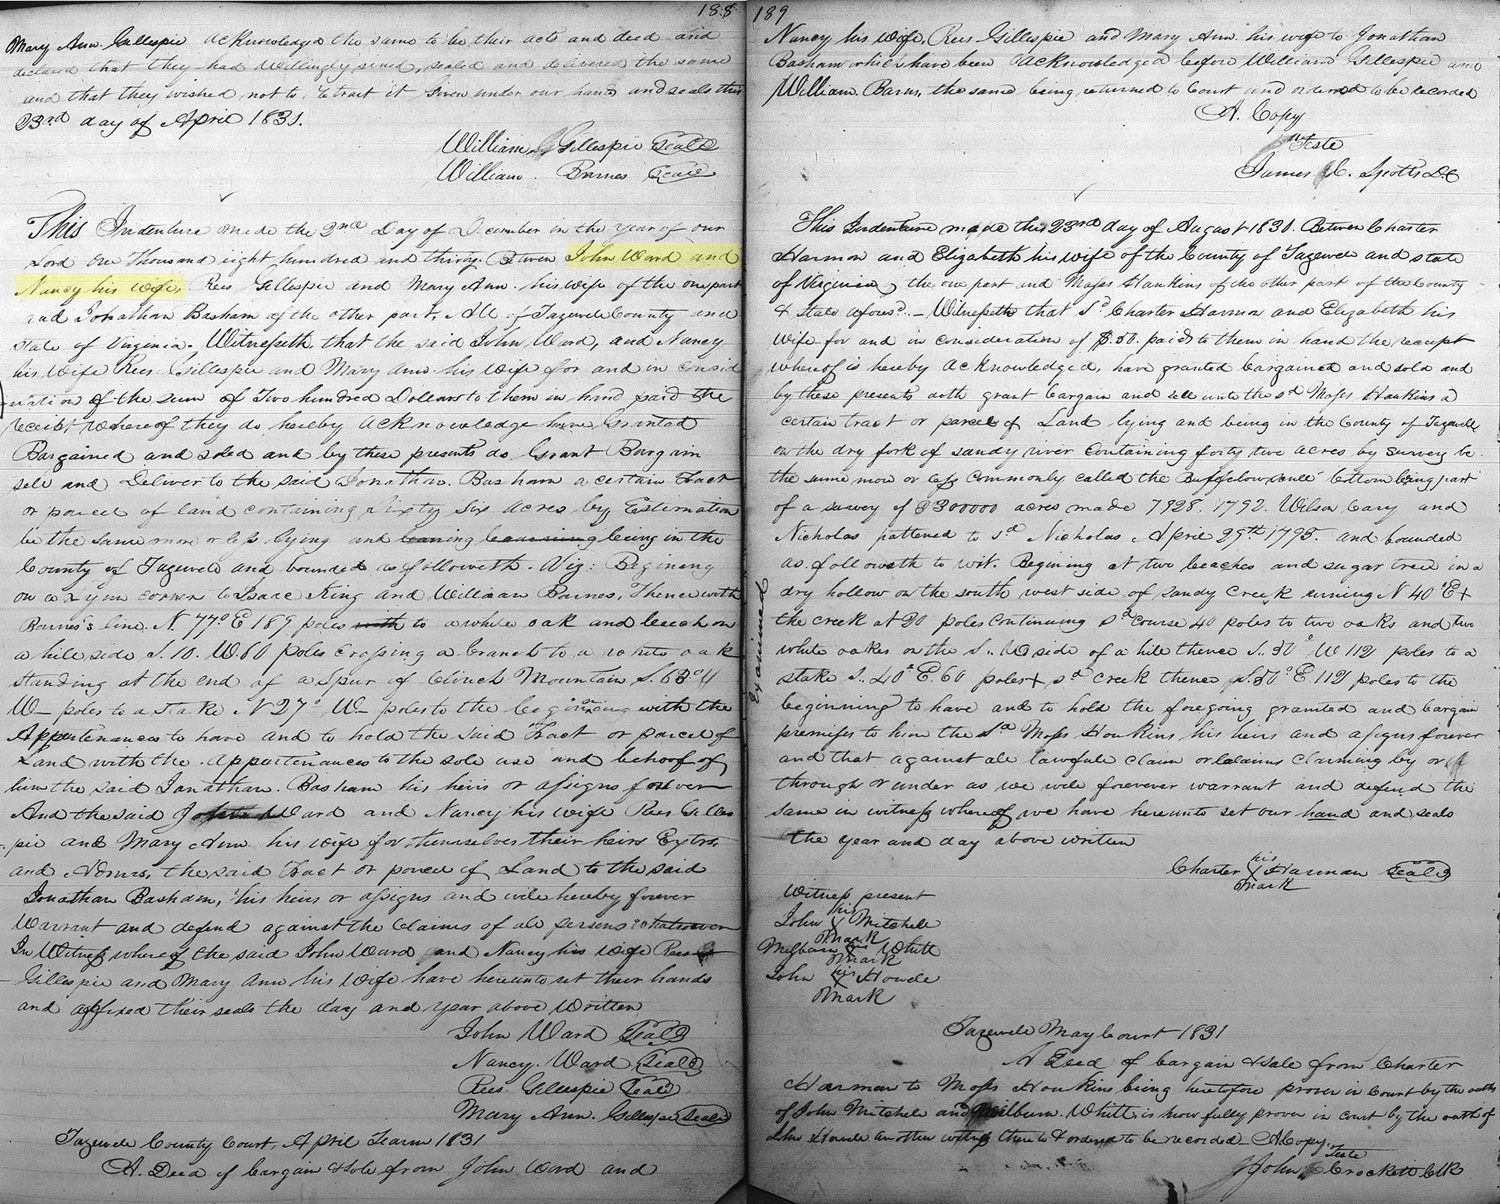 188
Mary Ann Gillespie acknowledged the same to be their acts and deed and
declared that they had willingly sined, sealed and delivered the same
and that they wished not to retract it Given under our hands and seals this
23rd day of April 1831.
William Gillespie Seal
William. Barnes Seal
This Indenture made the 2nd Day of December in the year of our
Lord One Thousand eight hundred and thirty. Betwen John Ward and
Nancy his wife, Rees Gillespie and Mary Ann his wife of the one part
and Jonathan Basham of the other part, All of Tazewell County and
State of Virginia. Witnesseth that the said John Ward, and Nancy
his wife Rees Gillespie and Mary Ann his wife for and in consid
eration of the sum of Two hundred Dollars to them in hand paid the
receibt whereof they do hereby acknowledge have Granted
Bargained and sold and by these presents do Grant Bargain
sell and Deliver to the said Jonathan Basham a certain Tract
or parcel of land containing Sixty Six acres by Estemation
be the same more or less lying and being in the
County of Tazewell and bounded as followeth. Viz: Begining
on a Lynn corner to Isaac King and William Barnes, Thence with
Barnes's line N 77° E 189 poles with to a white oak and beech on
a hill side S. 10. W. 60 poles crossing a branch to a white oak
standing at the end of a Spur of Clinch Mountain S. 63°
W— poles to a stake N 27° W— poles to the begining with the
Appurtenances to have and to hold the said Tract or parcel of
Land with the Appurtenances to the sole use and behoof of
him the said Jonathan Basham his heirs or assigns forever
And the said John Ward and Nancy his wife Rees Gilles
pie and Mary Ann his wife for themselves their heirs Extrs,
and Admrs, the said Tract or parcel of Land to the said
Jonathan Basham, his heirs or assigns and will hereby forever
warrant and defend against the claims of all persons whatsoever
In Witness whereof the said John Ward and Nancy his wife Rees
Gillespie and Mary Ann his wife have hereunto set their hands
and affixed their seals the day and year above written
John Ward Seal
Nancy. Ward Seal
Rees Gillespie Seal
Mary Ann. Gillespie Seal
Tazewell County Court, April Tearm 1831
A. Deed of bargain & sole from John Ward and
189
Nancy his wife, Rees Gillespie and Mary Ann his wife to Jonathan
Basham which have been acknowledged before William Gillespie and
William. Barns, the same being returned to Court and ordered to be recorded
A. Copy
Teste
James C. Spotts D.C
This Indenture made this 23rd day of August 1830. Betwen Charter
Harmon and Elizabeth his wife of the County of Tazewell and state
of Virginia, the one part and Moses Hankins of the other part of the County
& State aforesd. — Witnesseth that sd Charter Harmon and Elizabeth his
wife for and in consideration of $.50. paid to them in hand the receipt
whereof is hereby acknowledged, have granted bargained and sold and
by these presents doth grant bargain and sell unto the sd Moses Hankins a
certain tract or parcel of Land lying and being in the County of Tazewell
on the dry fork of sandy river containing forty two acres by survey be
the same more or less commonly called the Buffelow bottom being part
of a survey of 300000 acres made 1792. Wilson Cary and
Nicholas pattened to sd Nicholas April 25th 1795. and bounded
as followeth to wit. Begining at two beaches and sugar tree in a
dry hollow on the south west side of Sandy Creek runing N 40° E +
the creek at 20 poles continuing sd course 40 poles to two oaks and two
white oakes on the S. W side of a hill thence S. 37° W 112 poles to a
stake S. 40° E. 60 poles + sd Creek thence S. 50° E. 112 poles to the
beginning to have and to hold the foregoing granted and bargain
premises to him the sd Moses Hankins his heirs and assigns forever
and that against all lawfull claim or claims claiming by or
through or under as we will forever warrant and defend the
same in witness whereof we have hereunto set our hand and seals
the year and day above written
Charter his X mark Harman Seal
Examined
Witness present
John his X mark Mitchele
Milburn his X mark Whitt
John his X mark Howde
Tazewell May Court 1831
A Deed of bargain & sale from Charter
Harman to Moses Hankins being heretofore proven in Court by the oaths
of John Mitchele and Milburn. Whitt is now fully proven in court by the oath of
John Howde another witness thereto & ordered to be recorded A Copy.
Teste
John Crockett Clk